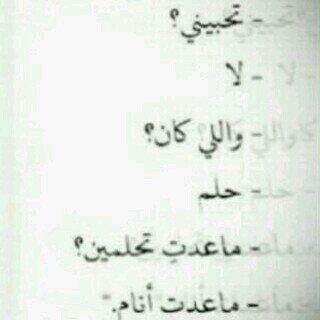 - تحبيني؟
- لا
- واللي كان؟
- حلم
- ماعدتِ تحلمين؟
- ماعدت أنام."